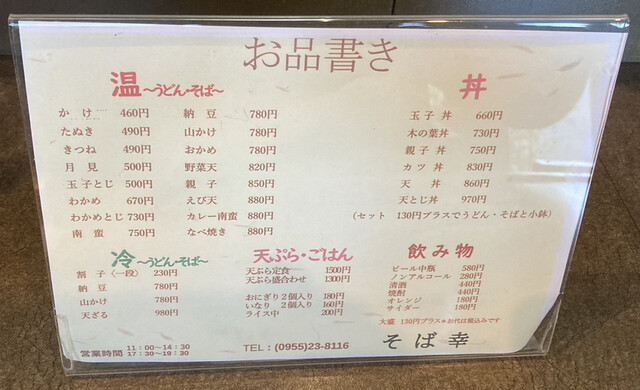 お品書き
温 ～うどん・そば～
かけ 460円
たぬき 490円
きつね 490円
月見 500円
玉子とじ 500円
わかめ 670円
わかめとじ 730円
南蛮 750円
納豆 780円
山かけ 780円
おかめ 780円
野菜天 820円
親子 850円
えび天 880円
カレー南蛮 880円
なべ焼き 880円
丼
玉子丼 660円
木の葉丼 730円
親子丼 750円
カツ丼 830円
天丼 860円
天とじ丼 970円
(セット 130円プラスでうどん・そばと小鉢)
冷 ～うどん・そば～
割子〈一段〉 230円
納豆 780円
山かけ 780円
天ざる 980円
天ぷら・ごはん
天ぷら定食 1500円
天ぷら盛合わせ 1300円
おにぎり2個入り 180円
いなり 2個入り 160円
ライス中 200円
飲み物
ビール中瓶 580円
ノンアルコール 280円
清酒 440円
焼酎 440円
オレンジ 180円
サイダー 180円
大盛 130円プラス*お代は税込みです
営業時間 11:00～14:30
17:30～19:30
TEL:(0955)23-8116
そば幸